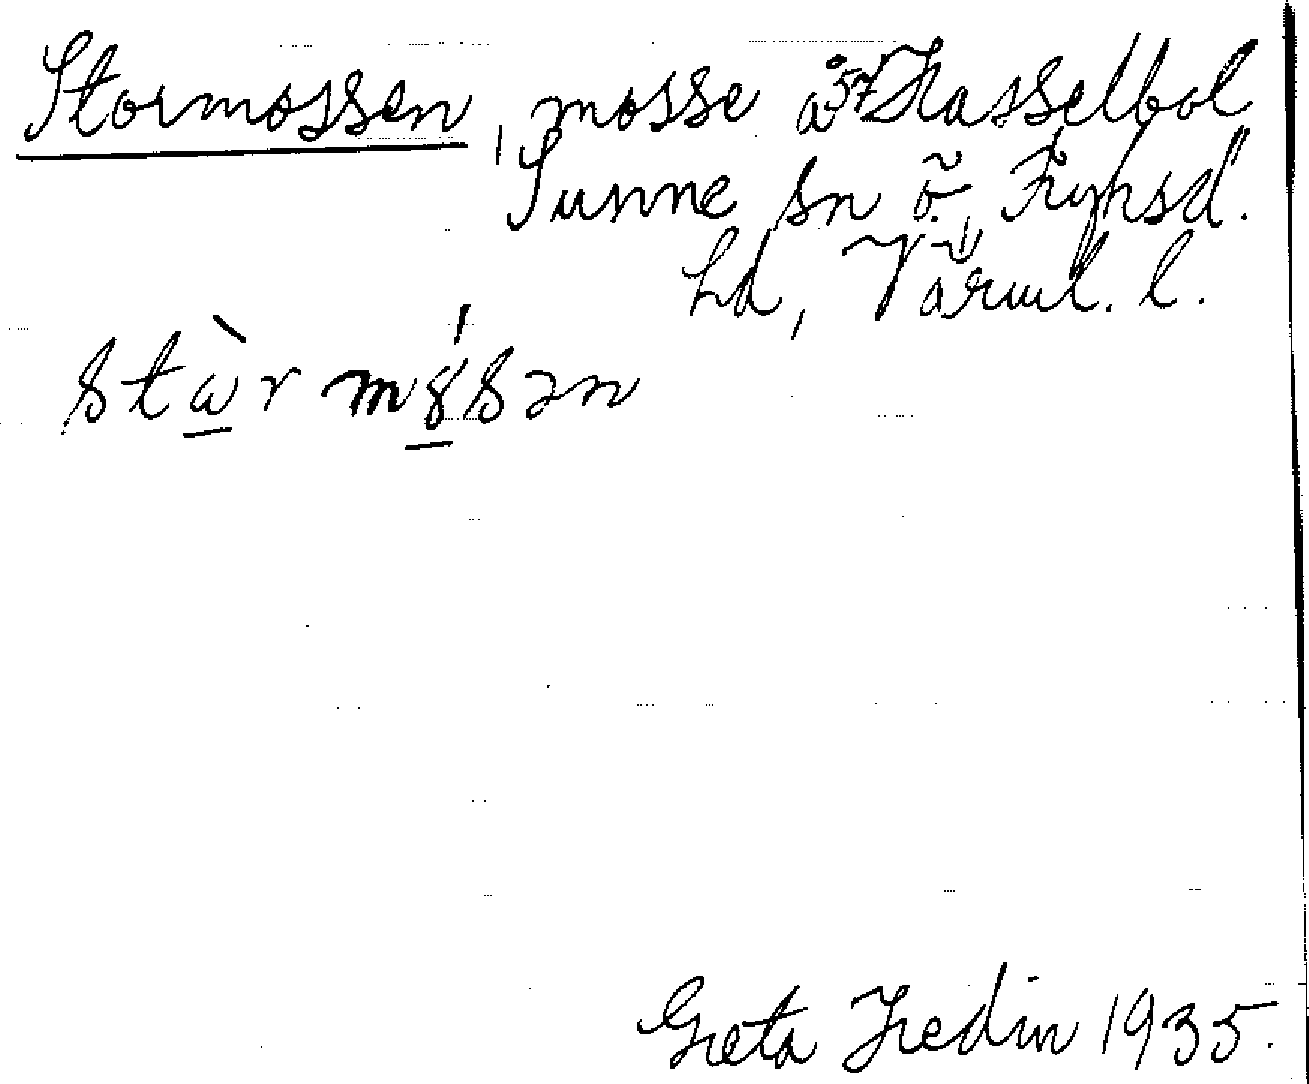 Stormossen, mosse å 57 Hasselbol
Sunne sn ö. Fryksd.
hd, Värml. l.
stὼrmȣ́sən
Greta Hedin 1935.